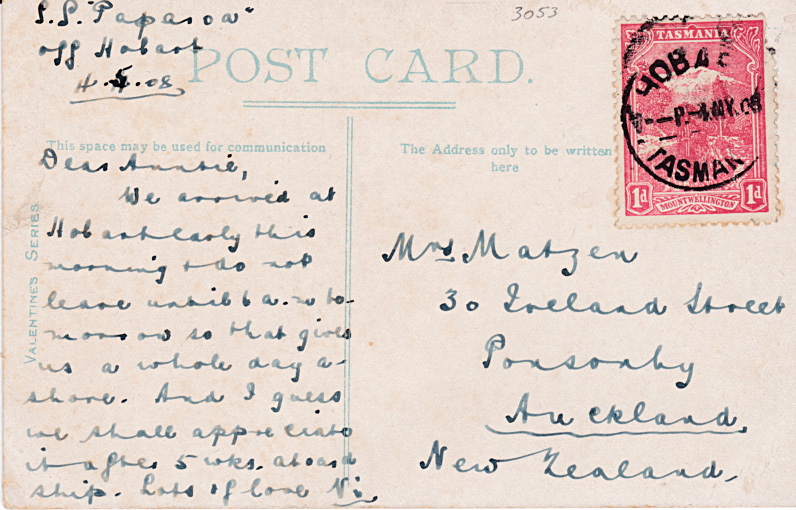 S.S. "Paparoa"
off Hobart
4.5.08.
3053
POST CARD.
This space may be used for communication
The Address only to be written
here
VALENTINE'S SERIES
Dear Auntie,
We arrived at
Hobart early this
morning & do not
leave until 6 a.m to-
morrow so that gives
us a whole day a-
shore. And I guess
we shall appreciate
it after 5 wks. aboard
ship. Lots of love Vi.
TASMANIA
1d
MOUNT WELLINGTON
1d
HOBA
4 MY 08
TASMAN
Mrs Matzen
30 Ireland Street
Ponsonby
Auckland,
New Zealand.